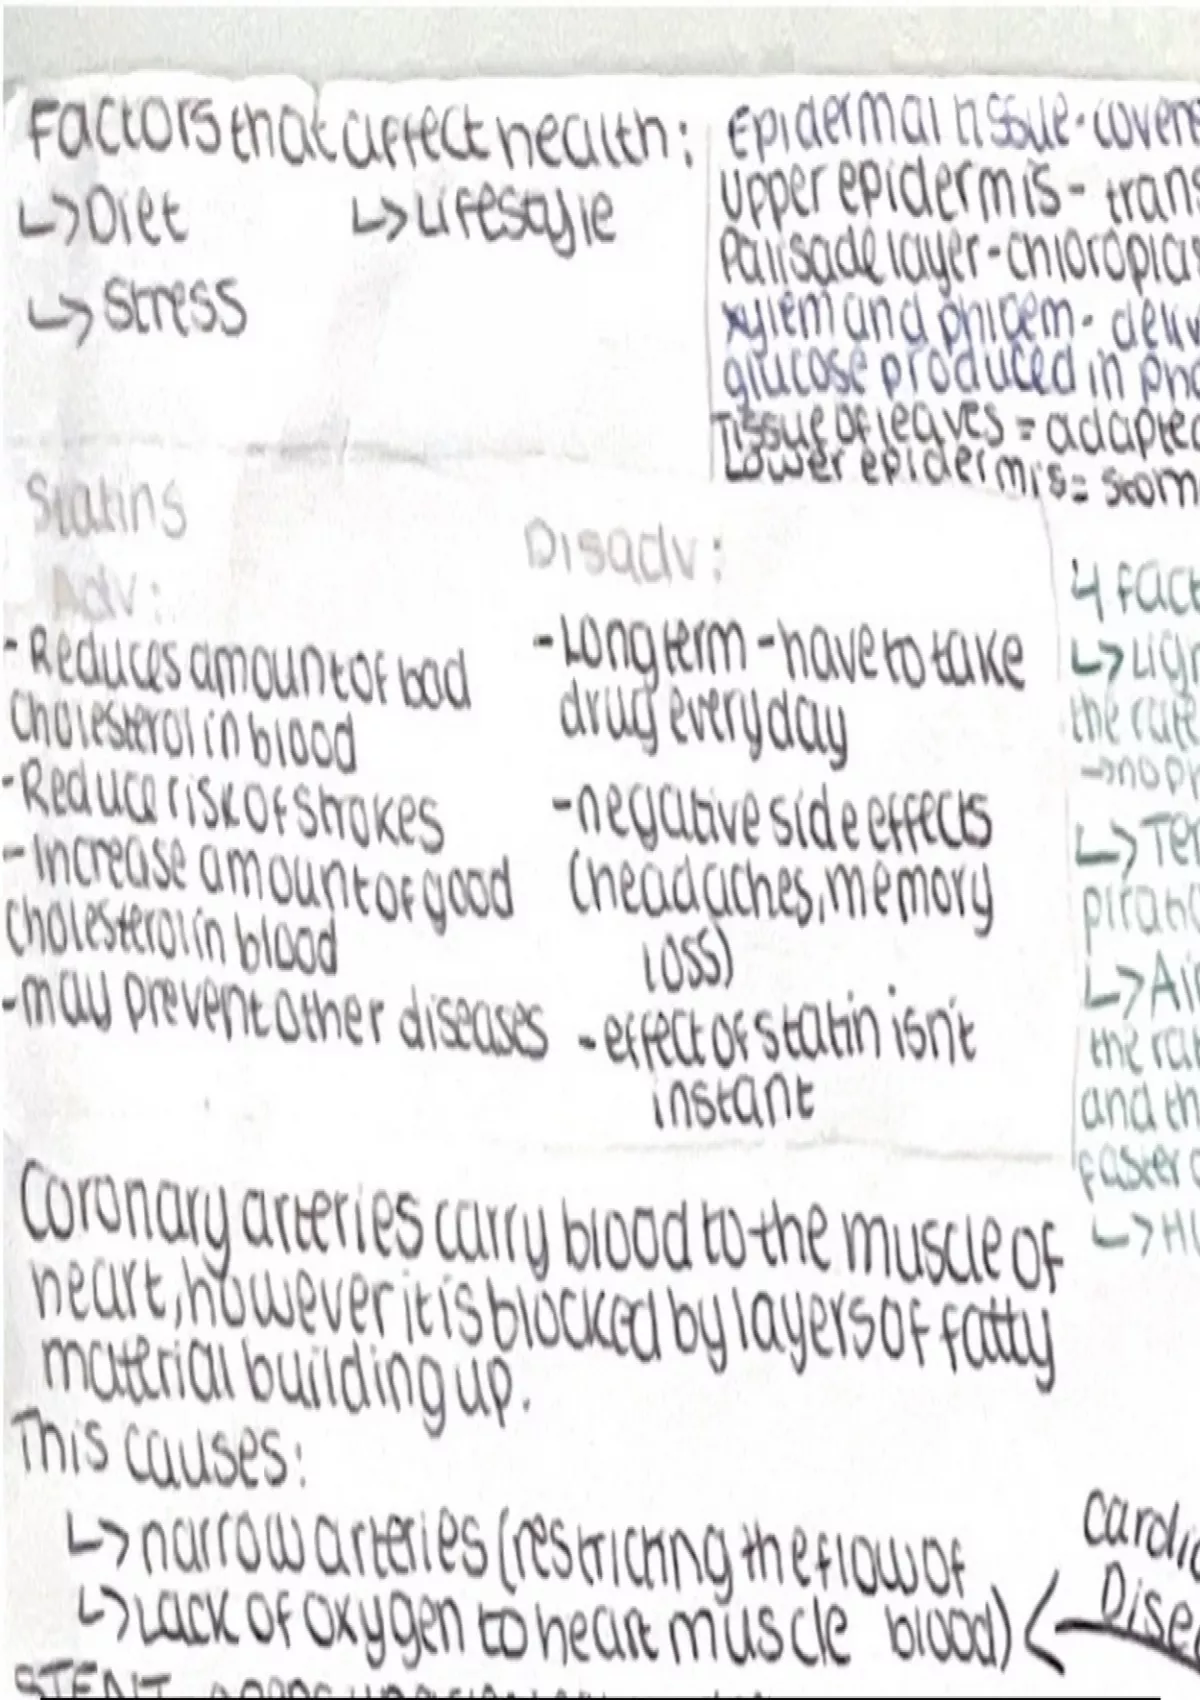 Factors that affect health:
↳Diet ↳Lifestyle
↳Stress
Epidermal tissue - covers
Upper epidermis - trans
Palisade layer - chloroplas
xylem and phloem - deliv
glucose produced in pho
Tissue of leaves = adapted
Lower epidermis = stom
Statins
Adv:
- Reduces amount of bad
cholesterol in blood
- Reduce risk of strokes
- Increase amount of good
cholesterol in blood
- may prevent other diseases
Disadv:
- Long term - have to take
drug everyday
- negative side effects
(headaches, memory
loss)
- effect of statin isn't
instant
4 fact
↳Ligh
the rate
→no pr
↳Te
pirati
↳Ai
the rat
and th
faster
↳H
Coronary arteries carry blood to the muscle of
heart, however it is blocked by layers of fatty
material building up.
This causes:
↳narrow arteries (restricting the flow of
↳Lack of oxygen to heart muscle blood)
Cardi
Dise
STENT